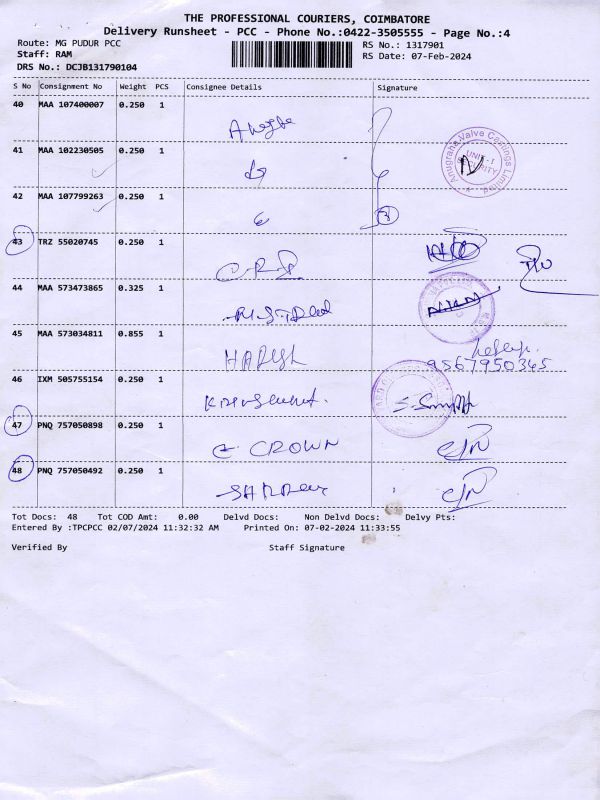 THE PROFESSIONAL COURIERS, COIMBATORE
Delivery Runsheet - PCC - Phone No.:0422-3505555 - Page No.:4
Route: MG PUDUR PCC
RS No.: 1317901
Staff: RAM
RS Date: 07-Feb-2024
DRS No.: DCJB131790104
S No Consignment No Weight PCS Consignee Details Signature
40 MAA 107400007 0.250 1
41 MAA 102230505 0.250 1
Anugraha Valve Castings Limited
UNIT-I
SECURITY
42 MAA 107799263 0.250 1
43 TRZ 55020745 0.250 1
44 MAA 573473865 0.325 1
45 MAA 573034811 0.855 1 HARISH
9567950345
46 IXM 505755154 0.250 1
47 PNQ 757050898 0.250 1 CROWN
48 PNQ 757050492 0.250 1
Tot Docs: 48 Tot COD Amt: 0.00 Delvd Docs: Non Delvd Docs: Delvy Pts:
Entered By :TPCPCC 02/07/2024 11:32:32 AM Printed On: 07-02-2024 11:33:55
Verified By Staff Signature